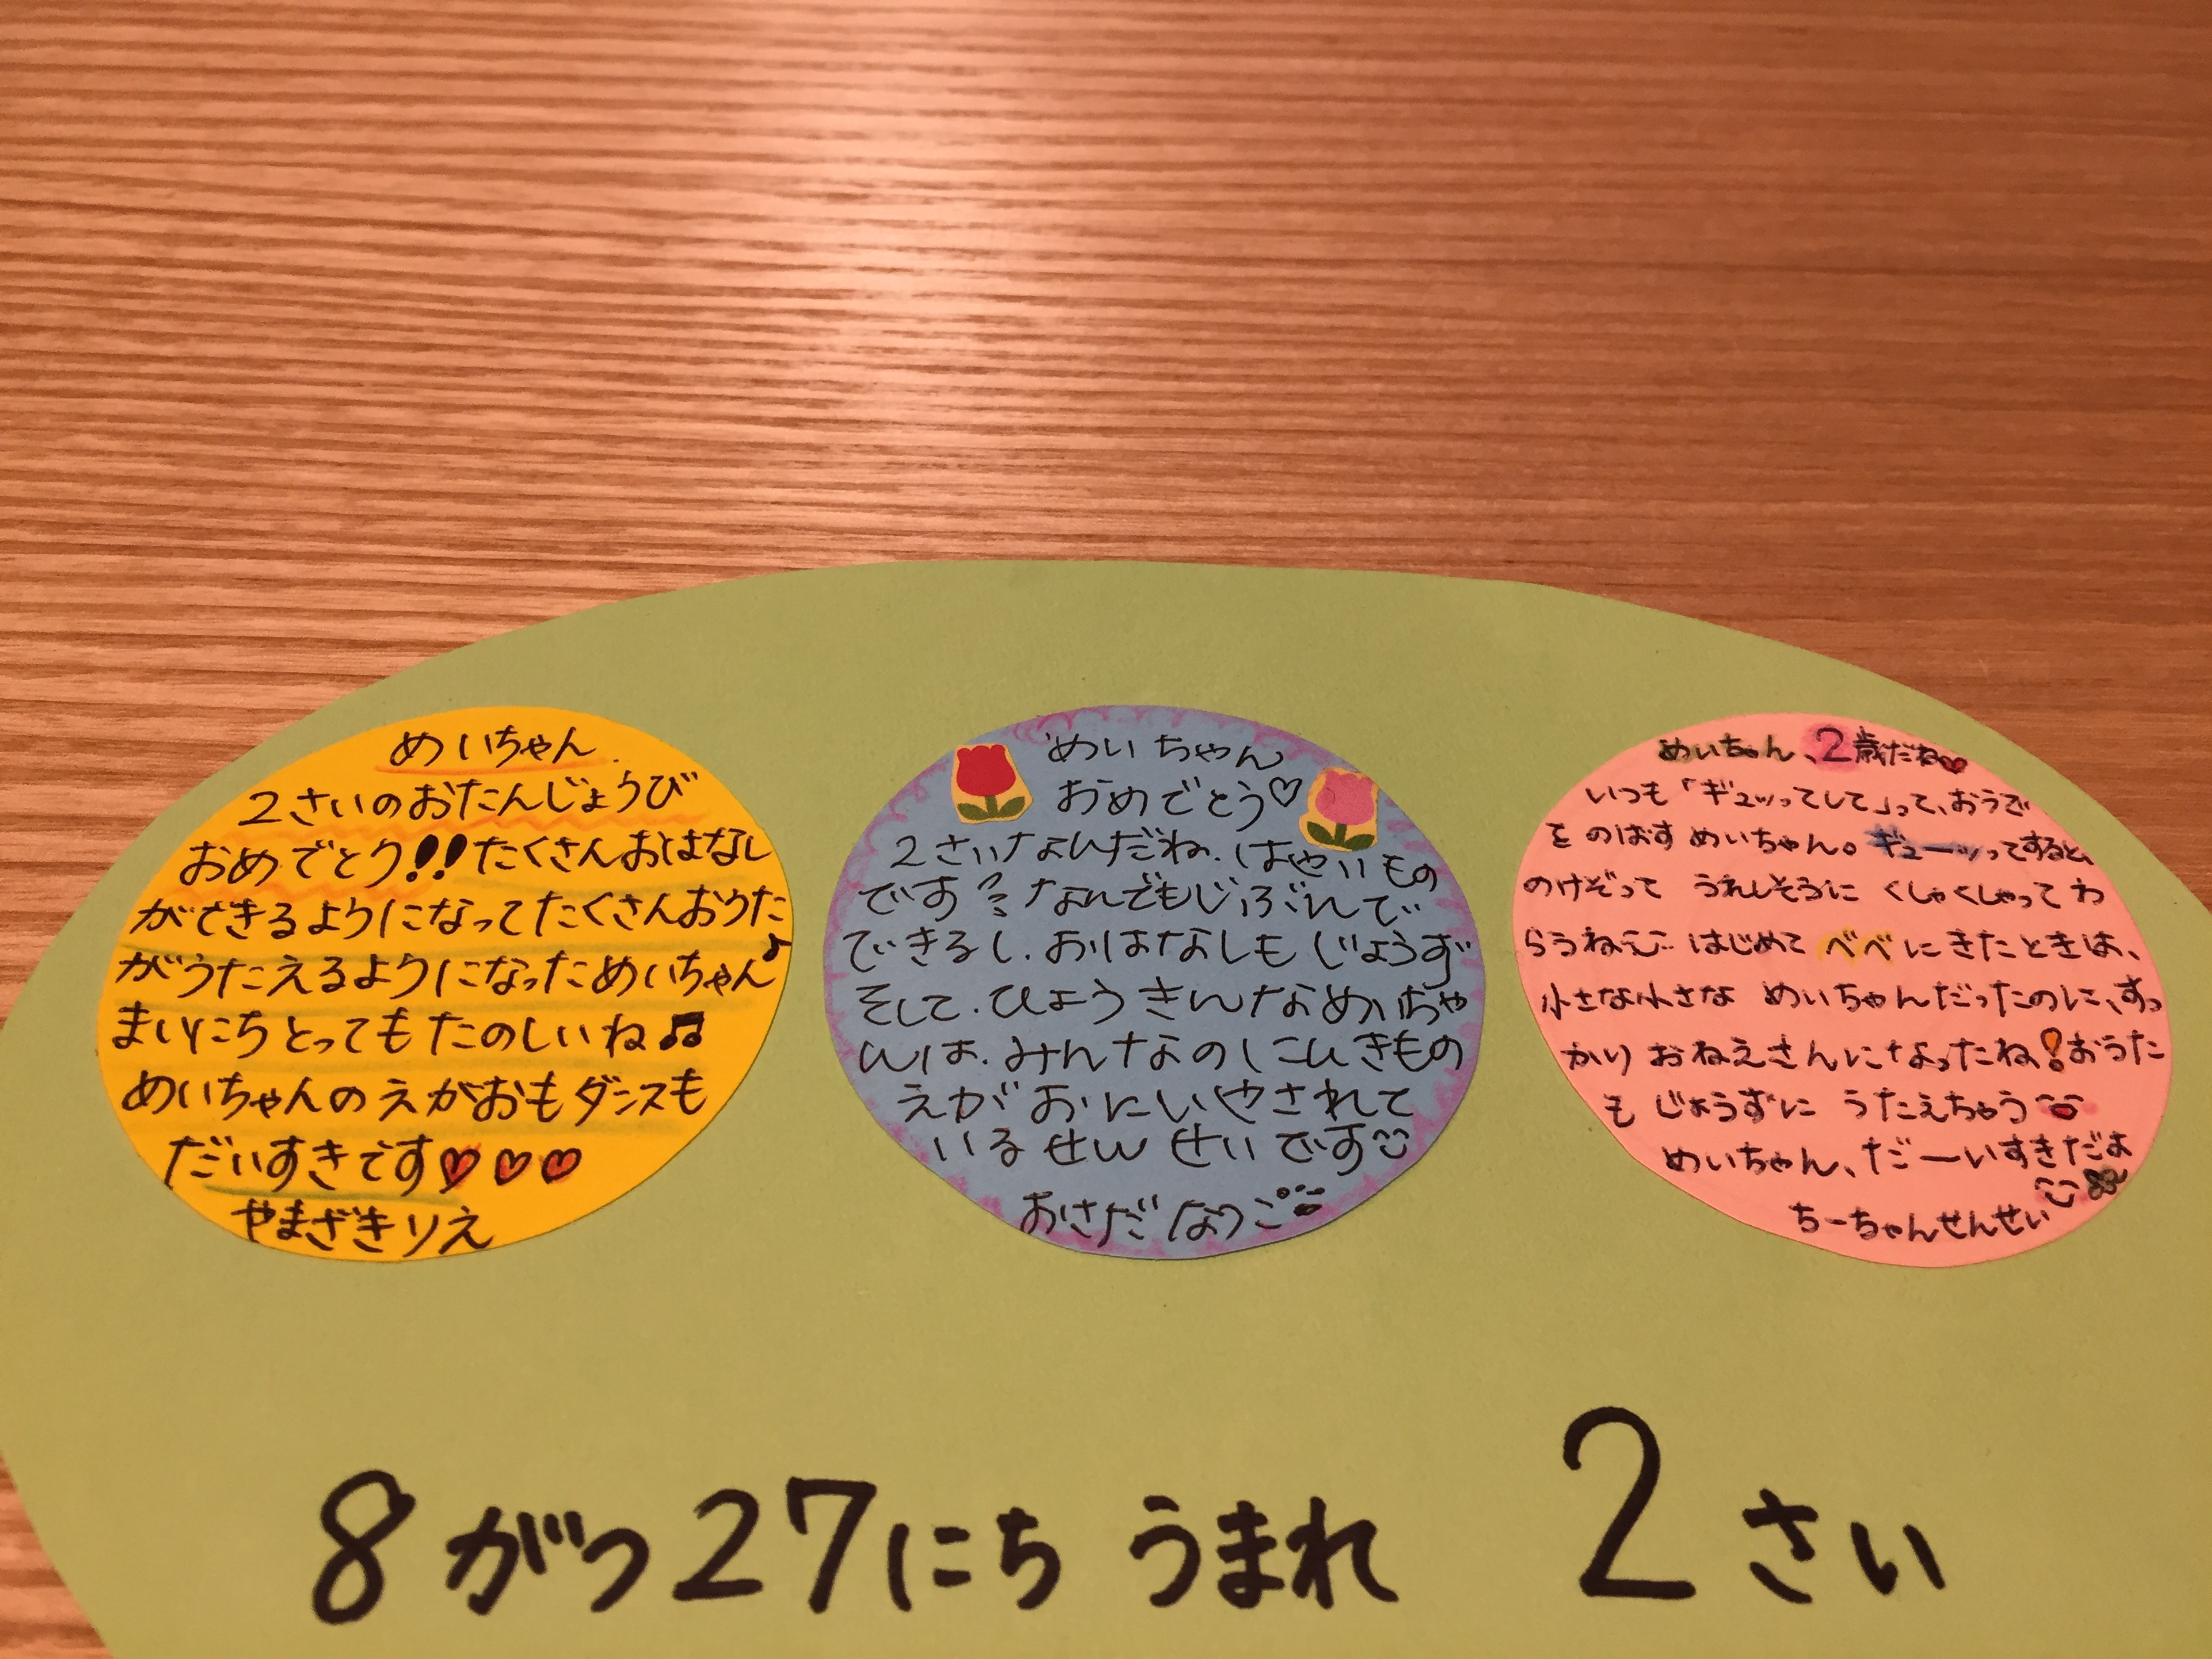 めいちゃん
2さいのおたんじょうび
おめでとう!!たくさんおはなし
ができるようになってたくさんおうた
がうたえるようになっためいちゃん♪
まいにちとってもたのしいね♫
めいちゃんのえがおもダンスも
だいすきです♡♡♡
やまざきりえ
めいちゃん
おめでとう♡
2さいなんだね.はやいもの
です なんでもじぶんで
できるし.おはなしもじょうず
そして.ひょうきんなめいちゃ
んは.みんなのにんきもの
えがおにいやされて
いるせんせいです
おさだ
めいちゃん、2歳だね♡
いつも「ギュッってして」って、おうで
をのばすめいちゃん。ギューッってすると、
のけぞって うれしそうに くしゃくしゃってわ
らうね はじめて べべにきたときは、
小さな小さな めいちゃんだったのに、すっ
かり おねえさんになったね!おうた
も じょうずに うたえちゃう
めいちゃん、だーいすきだよ
ちーちゃんせんせい
8がつ27にち うまれ 2さい